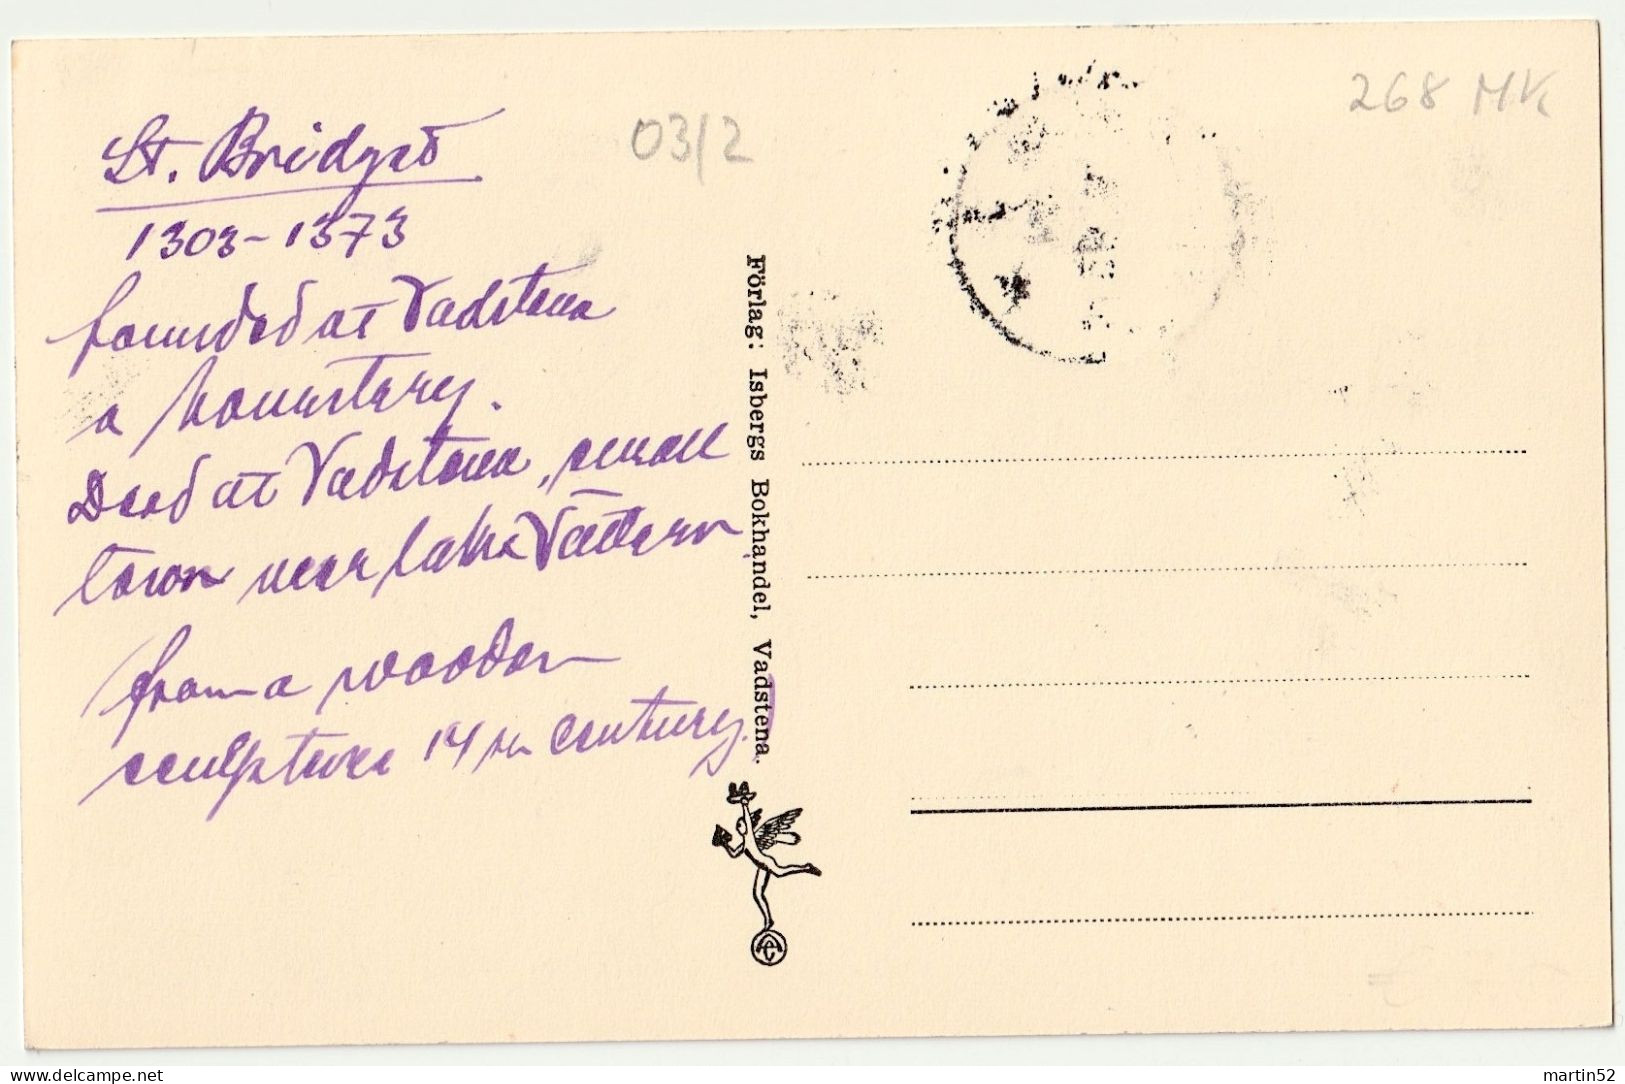 St. Bridget
1303-1373
founded at Vadstena
a monastery.
Deed at Vadstena, small
town near lake Vättern
from a wooden
sculpture 14th century.
03/2
268 MK
Förlag: Isbergs Bokhandel, Vadstena.
delcampe.net
martin52